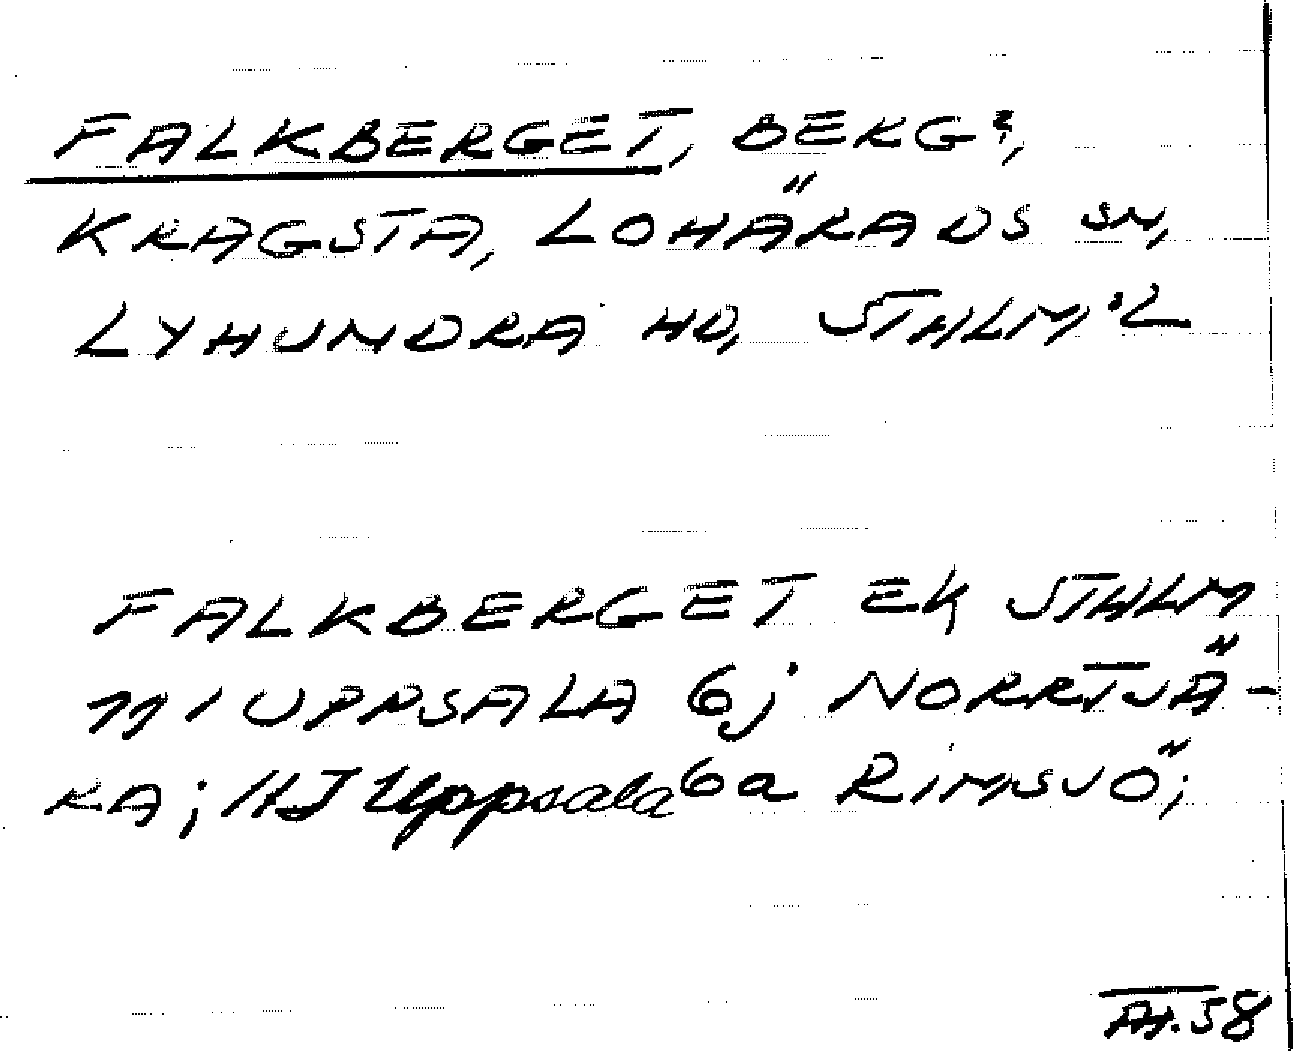 FALKBERGET, BERG?,
KRAGSTA, LOHÄRADS SN,
LYHUNDRA HD, STHLM:L
FALKBERGET EK STHLM
111 UPPSALA 6j NORRTJÄ-
KA; HJ Uppsala 6a RIMSJÖ;
58